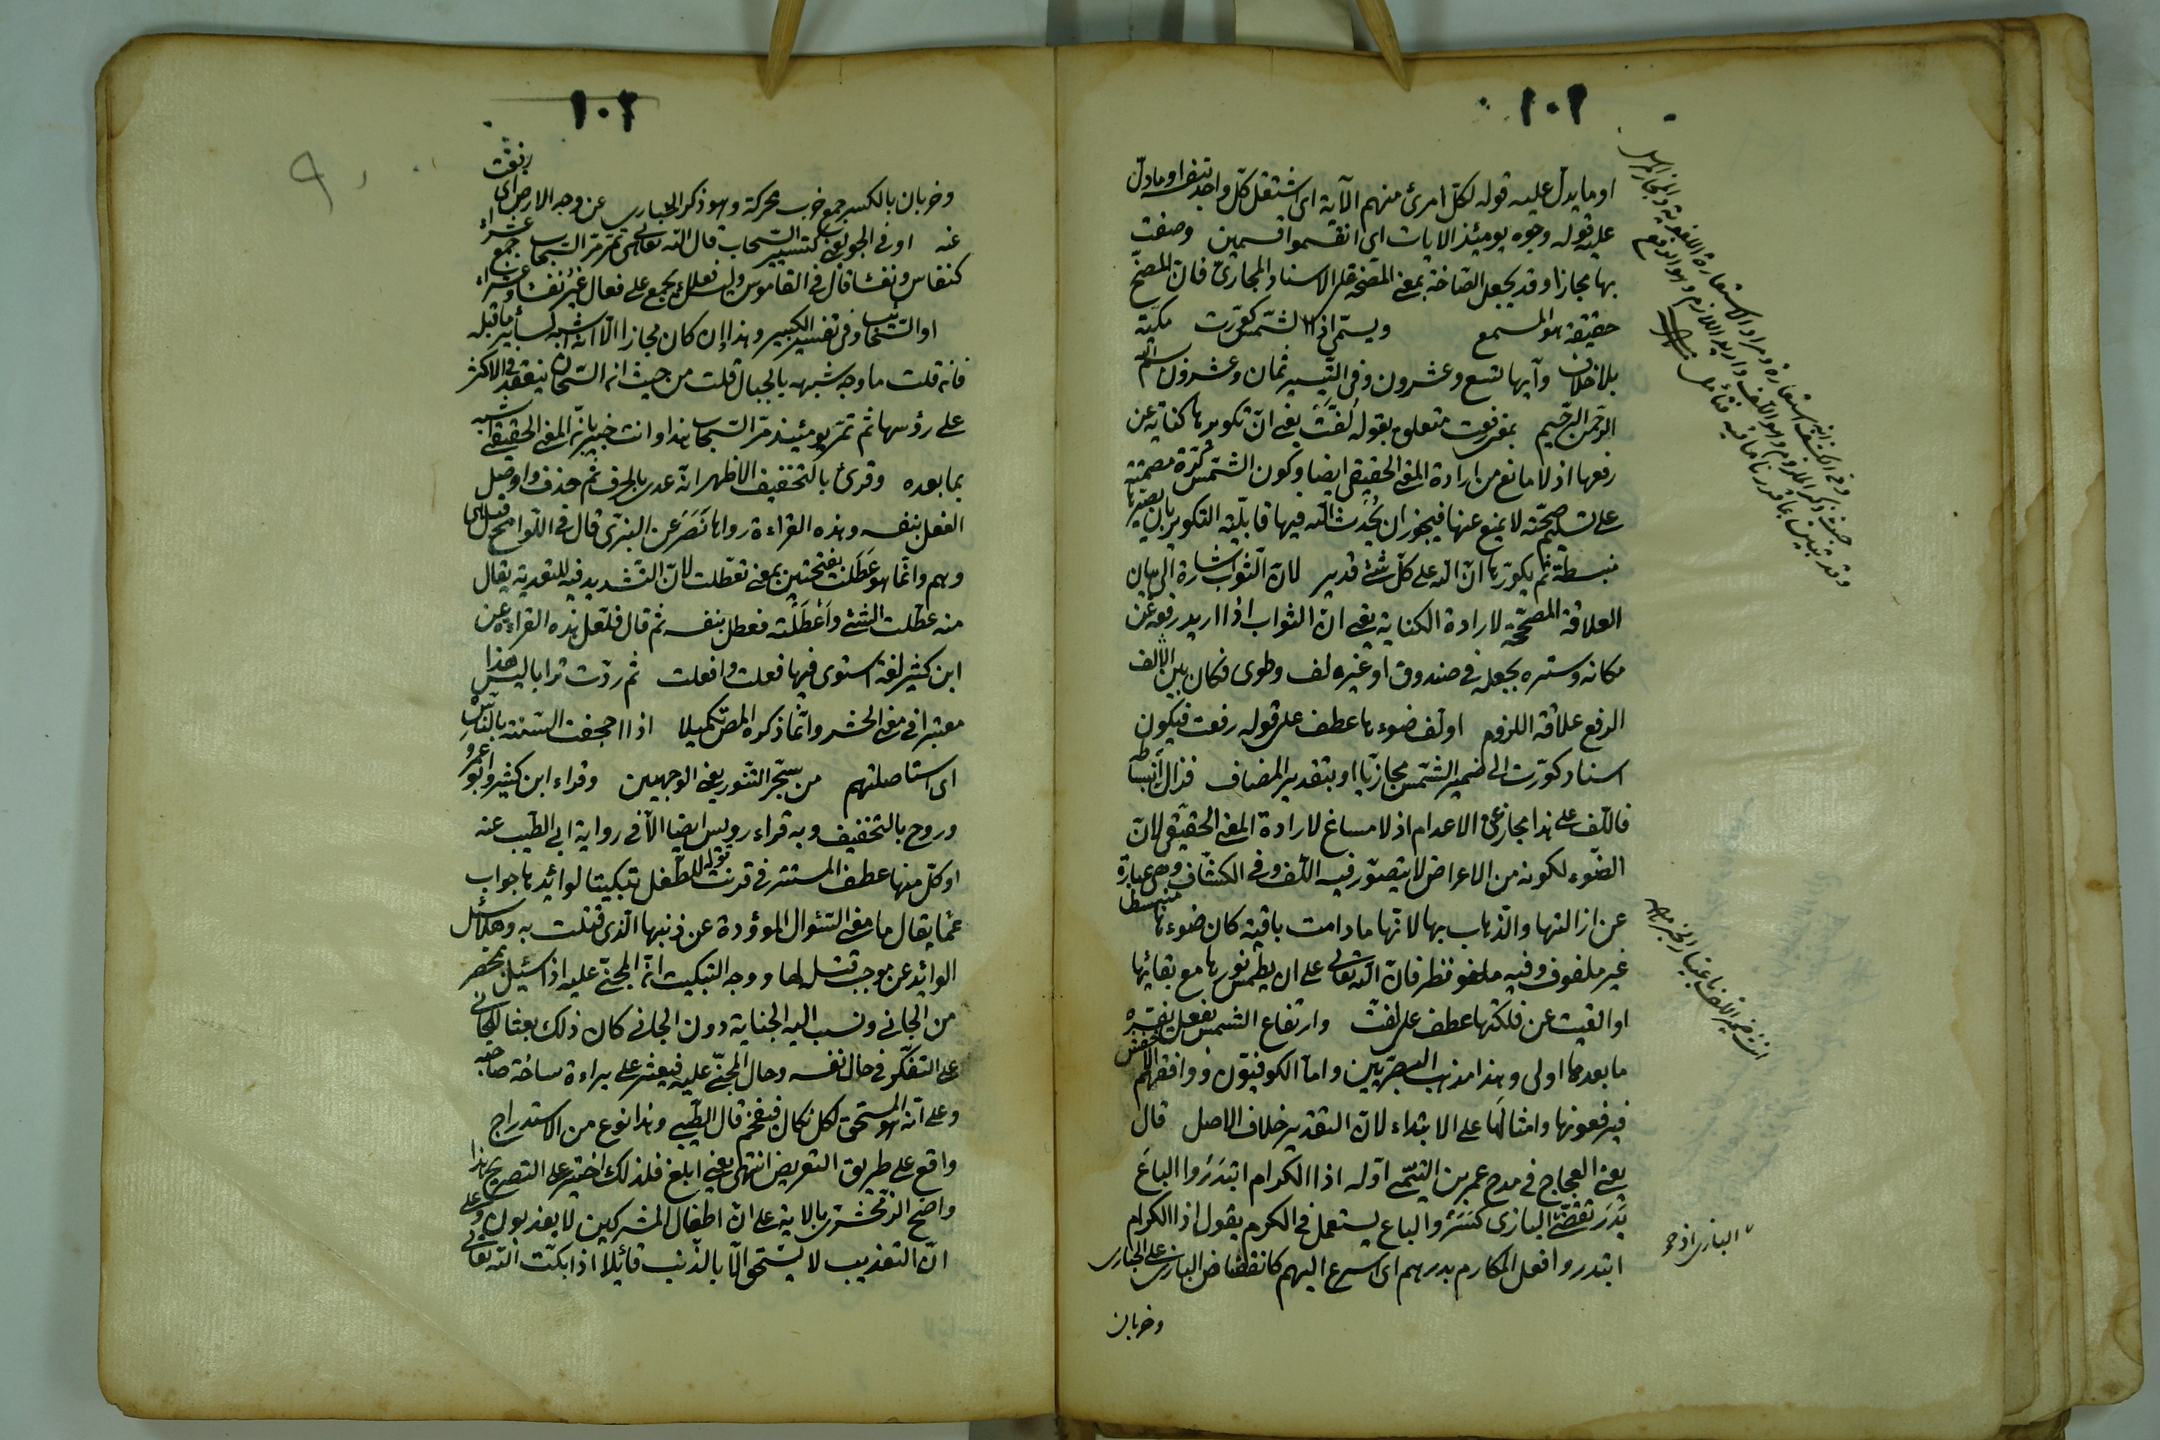 ١٠١
او ما يدل عليه قوله لكل امرئ منهم الآية اى اشتغل كل واحد بنفسه او ما دل
عليه قوله وجوه يومئذ الايات اى انقسموا قسمين وصفت
بها مجازا وقد يجعل الصاخة بمعنى المصخة على الاسناد المجازى فان المصخ
حقيقة هو المسمع ويسمى اذا الشمس كورت مكية
بلا خلاف وآيها تسع وعشرون وفى التيسير ثمان وعشرون بسم الله
الرحمن الرحيم بمعنى رفعت متعلق بقوله لفت يعنى ان تكويرها كناية عن
رفعها اذ لا مانع من ارادة المعنى الحقيقى ايضا وكون الشمس كرة مصمتة
على تسليم صحته لا يمنع عنها فيجوز ان يحدث الله فيها قابلية التكوير بان يصيرها
منبسطة ثم يكورها ان الله على كل شئ قدير لان الثوب اشارة الى بيان
العلاقة المصححة لارادة الكناية يعنى ان الثواب اذا اريد رفعه عن
مكانه وستره بجعله فى صندوق او غيره لف وطوى فكان بين اللف
الرفع علاقة اللزوم او لف ضوءها عطف على قوله رفعت فيكون
اسناد كورت الى ضمير الشمس مجازيا او بتقدير المضاف فزال انبساطه
فاللف على هذا مجاز عن الاعدام اذ لا مساغ لارادة المعنى الحقيقى لان
الضوء لكونه من الاعراض لا يتصور فيه اللف وفى الكشاف وهى عبارة
عن ازالتها والذهاب بها لانها ما دامت باقية كان ضوءها منبسطا
غير ملفوف وفيه نظر فان الله تعالى على ان يطمس نورها مع بقائها
او القيت عن فلكها عطف على لفت وارتفاع الشمس بفعل يفسره
ما بعدها اولى وهذا مذهب البصريين واما الكوفيون ووافقهم الاخفش
فيرفعونها وامثالها على الابتداء لان التقدير خلاف الاصل قال
يعنى العجاج فى مدح عمر بن التيمى اوله اذا الكرام ابتدروا الباع
بدر تقضى البازى كسر والباع يستعمل فى الكرم يقول اذا الكرام
ابتدروا فعل المكارم بدرهم اى اسرع اليهم كانقضاض البازى على الحبارى
وخربان
البازى اذ هو
١٠٢
وخربان بالكسر جمع خرب محركة وهو ذكر الحبارى عن وجه الارض اى رفعت
عنه او فى الجو يعنى كتسيير السحاب قال الله تعالى وهى تمر مر السحاب جمع عشراء
كنفاس ونفساء قال فى القاموس وليس فعلاء يجمع على فعال غير نفساء وعشراء
او السحائب وفى تفسير الكبير وهذا ان كان مجازا الا انه اشبه بسائر ما قبله
فانه قلت ما وجه شبهه بالجبال قلت من حيث انه السحاب ينعقد فى الاكثر
على رؤسها ثم تمر يومئيذ مر السحاب هذا وانت خبير بانه المعنى الحقيقى اشبه
بما بعده وقرئ بالتخفيف الاظهر انه عدى بالحرف ثم حذف واوصل
الفعل بنفسه وهذه القراءة رواها نصر عن البزى قال فى اللوامح قيل هى
وهم وانما هو عطلت بفتحتين بمعنى تعطلت لان التشديد فيه للتعدية يقال
منه عطلت الشئ واعطلته فعطل بنفسه ثم قال فلعل هذه القراءة عن
ابن كثير لغة استوى فيها فعلت وافعلت ثم ردت ترابا ليس هذا
معتبرا فى معنى الحشر وانما ذكره المص تكميلا اذا اجحفت السنة بالناس
اى استاصلتهم من سجر التنور يعنى الوجهين وقراء ابن كثير وابو عمرو
وروح بالتخفيف وبه قراء رويس ايضا الا فى رواية ابى الطيب عنه
او كل منها عطف المستتر فى قرنت قوله للطفل تبكيتا لوائدها جواب
عما يقال ما معنى السئوال الموؤدة عن ذنبها الذى قتلت به وهلا سئل
الوائد عن موجب قتله لها ووجه التبكيت انه المجنى عليه اذا سئيل بمحضر
من الجانى ونسب اليه الجناية دون الجانى كان ذلك بعثا للجانى
على التفكر فى حال نفسه وحال المجنى عليه فيعثر على براءة ساحة صاحبه
وعلى انه المستحق لكل نكال فيفحم قال الطيبى وهذا نوع من الاستدراج
واقع على طريق التعريض انتهى يعنى ابلغ فلذلك اختير على التصريح هذا
واضح الزمخشرى بالاية على ان اطفال المشركين لا يعذبون وعلى
ان التعذيب لا يستحق الا بالذنب قائلا اذا بكت الله تعالى